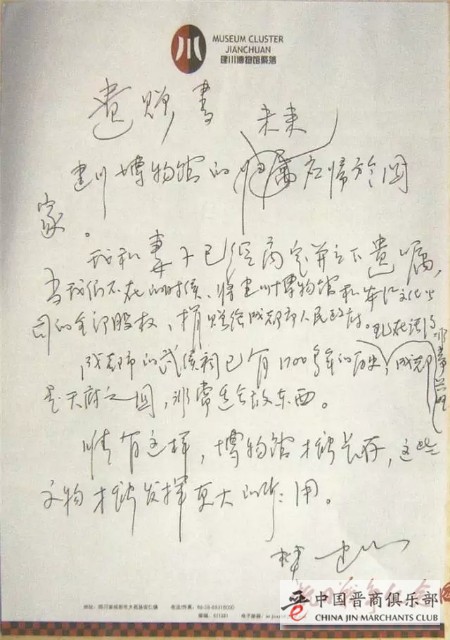 川
MUSEUM CLUSTER
JIANCHUAN
建川博物馆聚落
遗赠书
未来
建川博物馆的归属应归于国
家。
我和妻子已经商定并立下遗嘱,
当我们不在的时候,将建川博物馆和本
司的全部股权,捐赠给成都市人民政府。
成都市的武侯祠已有1700多年的历史,成都
是天府之国,非常适合放东西。
惟有这样,博物馆才能长存,这些
文物才能发挥更大的作用。
樊建川
中国晋商俱乐部
CHINA JIN MERCHANTS CLUB